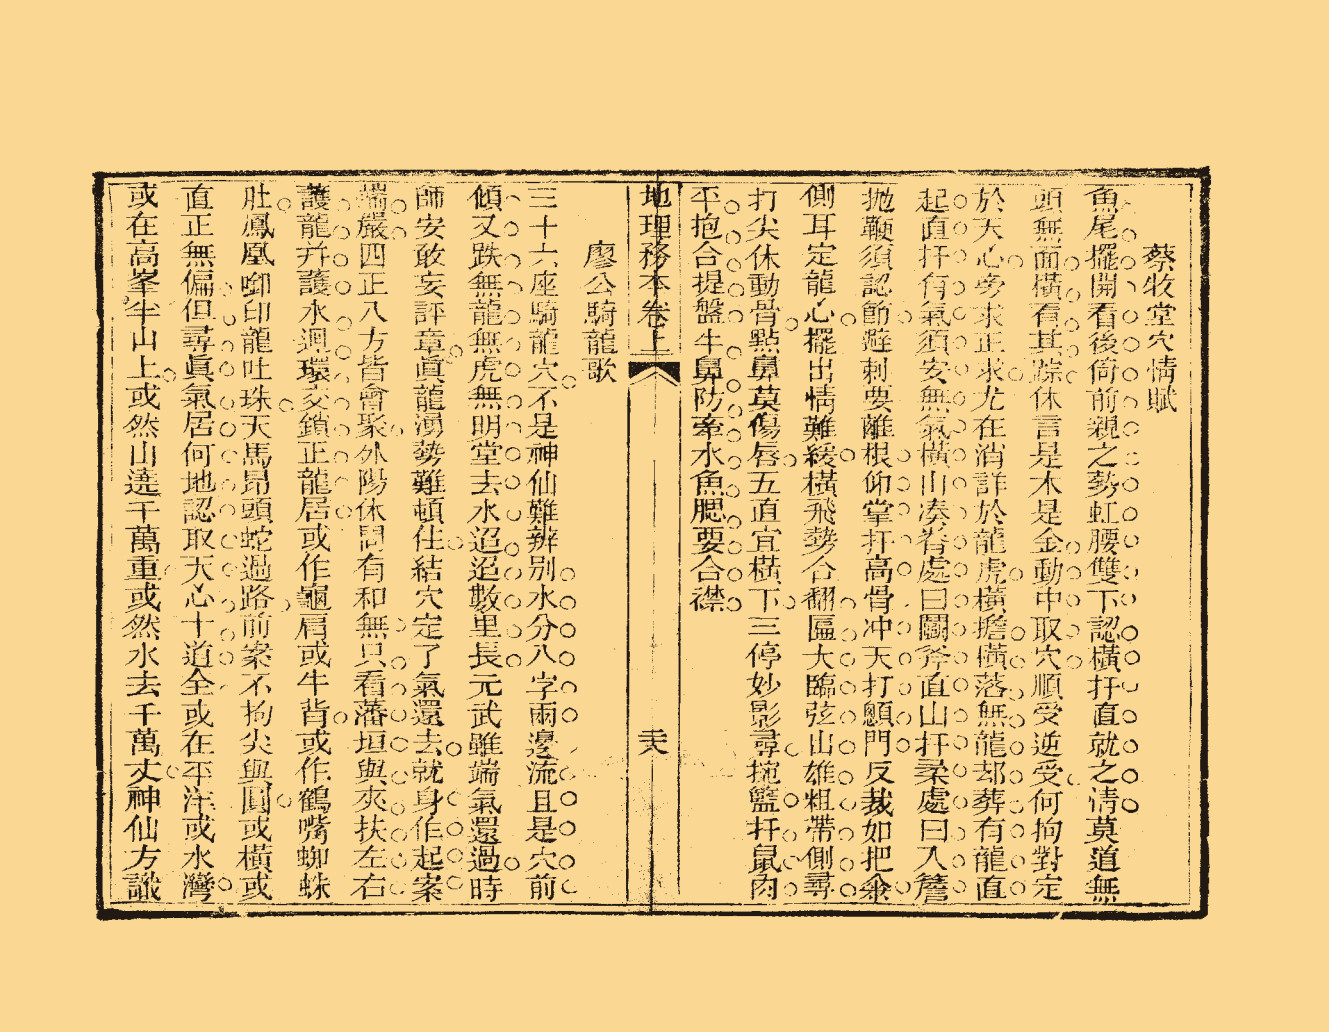 蔡牧堂穴情賦
魚尾擺開看後倚前親之勢虹腰雙下認橫扦直就之淸莫道無
頭無面橫有其踪休言是木是金動中取穴順受逆受何拘對定
於天心旁求正求尤在消詳於龍虎橫擔橫落無龍却葬有龍直
起直扦有氣須安無氣橫山湊脊處曰鬭斧直山扦柔處曰入簷
抛鞭須認節避刺要離根仰掌扦高骨冲天打顖門反裁如把傘
側耳定龍心擺出情難緩橫飛勢合翻區大臨弦山雄粗帶側尋
打尖休動骨點鼻莫傷唇五直宜橫下三停妙影尋掩籃扦鼠肉
平抱合提盤牛鼻防牽水魚腮要合襟
地理務本卷上
廿六
廖公騎龍歌
三十六座騎龍穴不是神仙難辨别水分八字兩邊流且是穴前
傾又跌無龍無虎無明堂去水迢迢數里長元武雖端氣還過時
師安敢妄評章眞龍湧勢難頓住結穴定了氣還去就身作起案
端嚴四正八方皆會聚外陽休問有和無只看藩垣與夾扶左右
護龍并護水迴環交鎖正龍居或作龜肩或牛背或作鶴嘴蜘蛛
肚鳳凰啣印龍吐珠天馬昂頭蛇過路前案不拘尖與圓或橫或
直正無偏但尋眞氣居何地認取天心十道全或在平洋或水灣
或在高峯半山上或然山遶千萬重或然水去千萬丈神仙方識